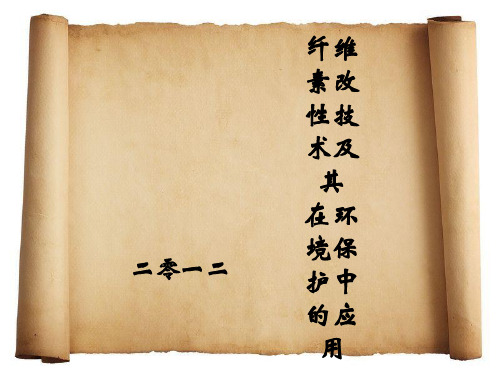 纤维
素改
性技
术及
其
在环
境保
护中
的应
用
二零一二